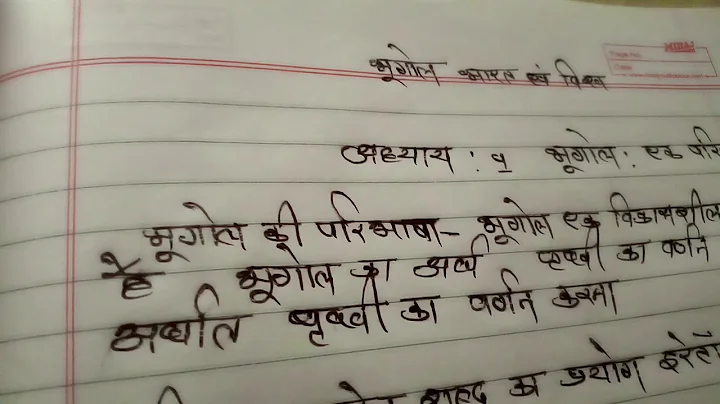 भूगोल भारत एवं विश्व
अध्याय : १ भूगोल : एक परि
भूगोल की परिभाषा - भूगोल एक विकासशील
है भूगोल का अर्थ पृथ्वी का वर्णन
अर्थात पृथ्वी का वर्णन करना
शब्द का प्रयोग इरेटॉ